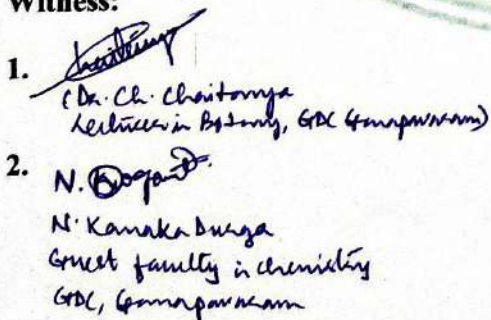 Witness:
1.
(Dr. Ch. Chaitanya
Lecturer in Botany, GDC Ganapavaram)
2. N.
N. Kanaka Durga
Guest faculty in chemistry
GDC, Ganapavaram